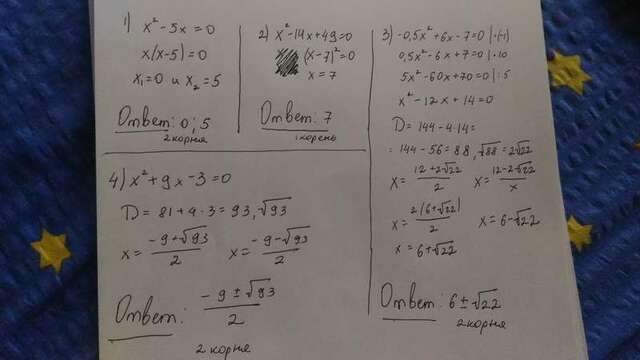 1) x² - 5x = 0
x(x-5) = 0
x₁=0 и x₂=5
Ответ: 0; 5
2 корня
2) x²-14x+49=0
(x-7)²=0
x = 7
Ответ: 7
1 корень
3) -0,5x²+6x-7=0 |·(-1)
0,5x²-6x+7=0 |·10
5x²-60x+70=0 |:5
x²-12x+14=0
D = 144-4·14=
= 144-56=88, √88=2√22
x= (12+2√22)/2 x= (12-2√22)/x
x= 2(6+√22)/2 x=6-√22
x = 6+√22
Ответ: 6±√22
2 корня
4) x²+9x-3=0
D = 81+4·3=93, √93
x= (-9+√93)/2 x= (-9-√93)/2
Ответ: (-9±√93)/2
2 корня